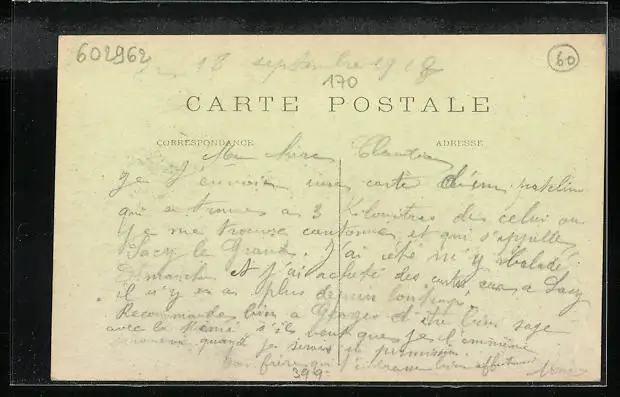 602962
18 septembre 1918
60
170
CARTE POSTALE
CORRESPONDANCE
ADRESSE
Mon chère
Je t'envoie une carte d'un patelin
qui se trouve a 3 Kilomètres de celui ou
je me trouve cantonné et qui s'appelle
Sacy le Grand. J'ai été m'y balader
Dimanche et j'ai acheté des cartes car a Sacy
il n'y en a plus depuis longtemps.
Recommande bien a Georges d'être bien sage
avec la Mémé s'il veut que je l'emmène
quand je serais en permission.
frère qui t'embrasse bien
399